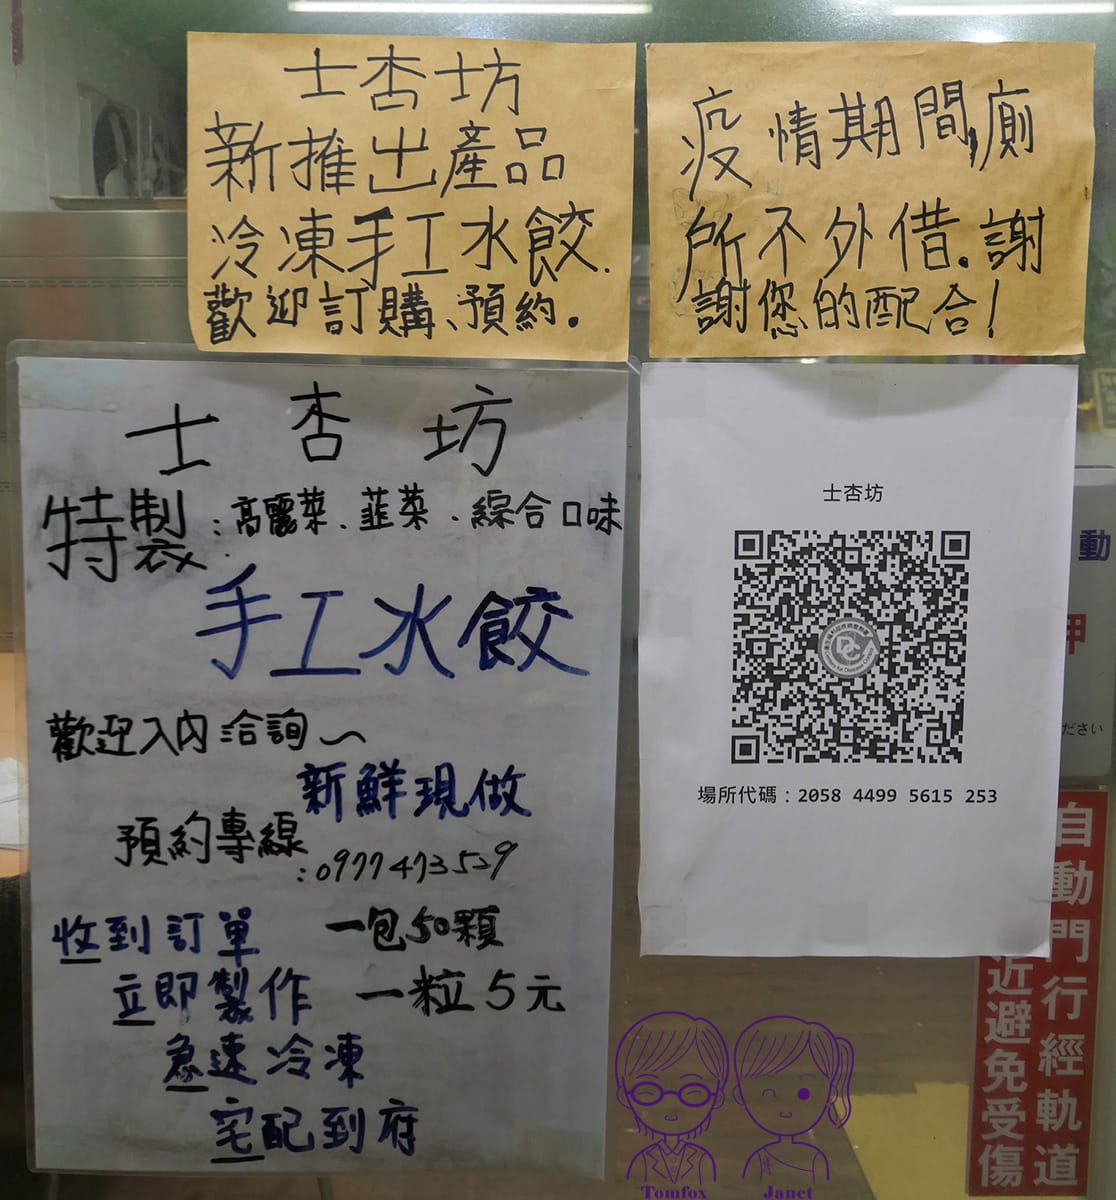 士杏坊
新推出產品
冷凍手工水餃.
歡迎訂購、預約。
疫情期間,廁
所不外借。謝
謝您的配合!
士杏坊
特製:高麗菜、韮菜、綜合口味
手工水餃
歡迎入內洽詢～
新鮮現做
預約專線
:0977473529
收到訂單
一包50顆
立即製作
一粒5元
急速冷凍
宅配到府
士杏坊
場所代碼:2058 4499 5615 253
動
押
ださい
自動門行經軌道
近避免受傷
Tomfox
Janet